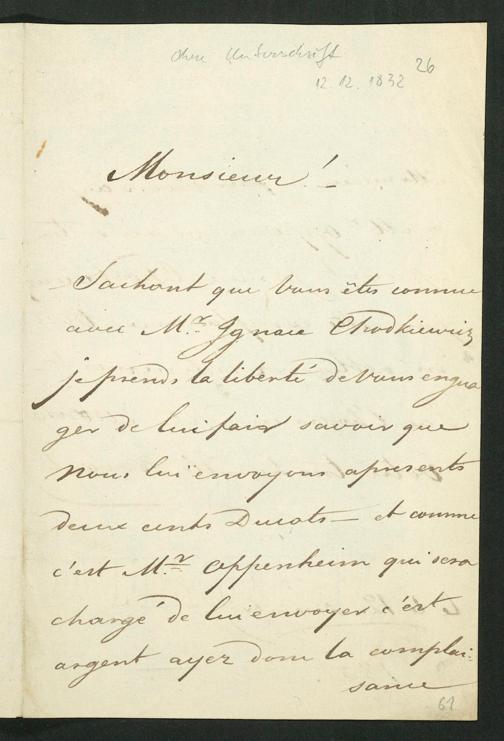 Ohne Unterschrift
26
12. 12. 1832
Monsieur! –
Sachant que Vous êtes connue
avec Mr. Ignace Chodkiewicz
je prends la liberté de Vous engua
ger de lui fair savoir que
Nous lui envoyons apresents
deux cents Ducats – et comme
c'est Mr. Oppenheim qui sera
chargé de lui envoyer c'est
argent ayez donc la complai:
sance
61